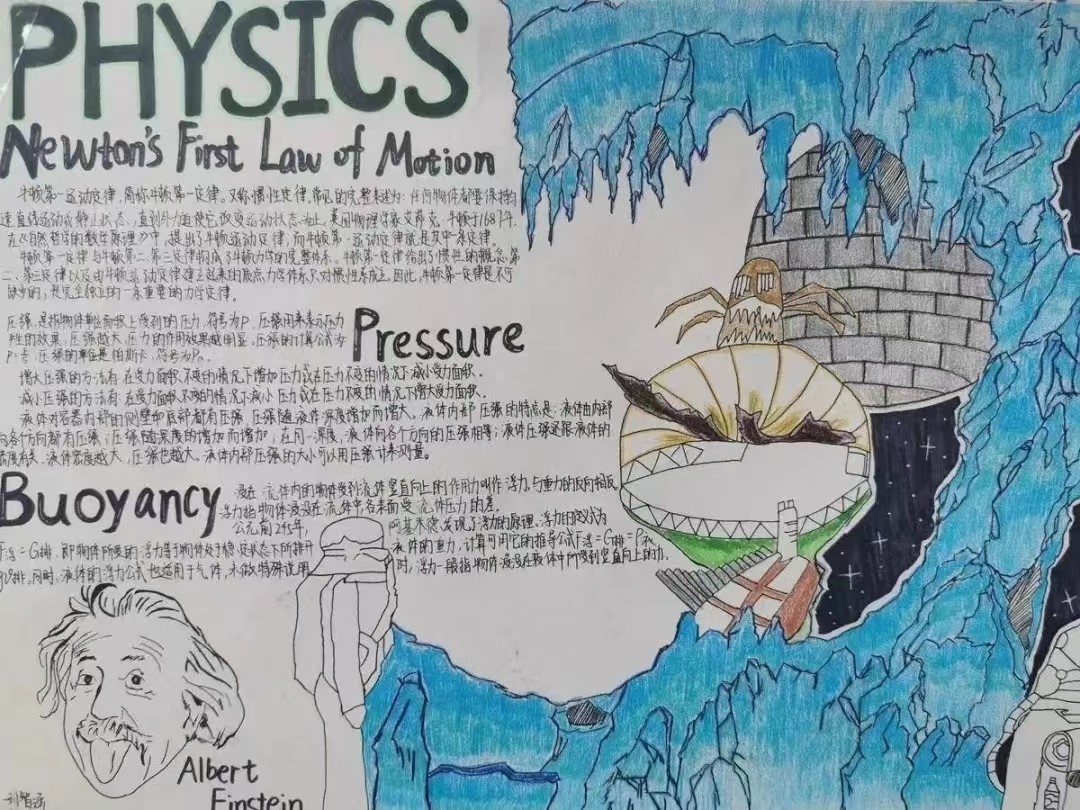 PHYSICS
Newton's First Law of Motion
牛顿第一运动定律,简称牛顿第一定律。又称惯性定律,常见的完整表述为:任何物体都要保持匀
速直线运动或静止状态,直到外力迫使它改变运动状态为止。英国物理学家艾萨克·牛顿于1687年
在《自然哲学的数学原理》中,提出了牛顿运动定律,而牛顿第一运动定律就是其中一条定律。
牛顿第一定律与牛顿第二、第三定律构成了牛顿力学的完整体系。牛顿第一定律给出了惯性的概念,第
二、第三定律以及由牛顿运动定律建立起来的质点力学体系只对惯性系成立。因此,牛顿第一定律是不可
缺少的,是完全独立的一条重要的力学定律。
Pressure
压强,是指物体单位面积上受到的压力,符号为P。压强用来表示压力
产生的效果,压强越大,压力的作用效果越明显。压强的计算公式为
压强的单位是帕斯卡,符号为Pa。
增大压强的方法有:在受力面积不变的情况下增加压力或在压力不变的情况下减小受力面积。
减小压强的方法有:在受力面积不变的情况下减小压力或在压力不变的情况下增大受力面积。
液体对容器内部的侧壁和底部都有压强,压强随液体深度增加而增大。液体内部压强的特点是:液体由内部
向各个方向都有压强;压强随深度的增加而增加;在同一深度,液体向各个方向的压强相等;液体压强还跟液体的
密度有关,液体密度越大,压强也越大。液体内部压强的大小可以用压强计来测量。
Buoyancy
浸在流体内的物体受到流体竖直向上的作用力叫作浮力,与重力的方向相反
浮力指物体浸没在流体中各表面受流体压力的差。
公元前245年,阿基米德发现了浮力的原理。浮力的定义式为
F浮=G排,即物体所受的浮力等于物体处于稳定状态下所排开液体的重力,计算可用它的推导公式F浮=G排=
同时,液体的浮力公式也适用于气体,未做特殊说明时,浮力一般指物体浸没在液体中所受到竖直向上的力。
Albert
Einstein